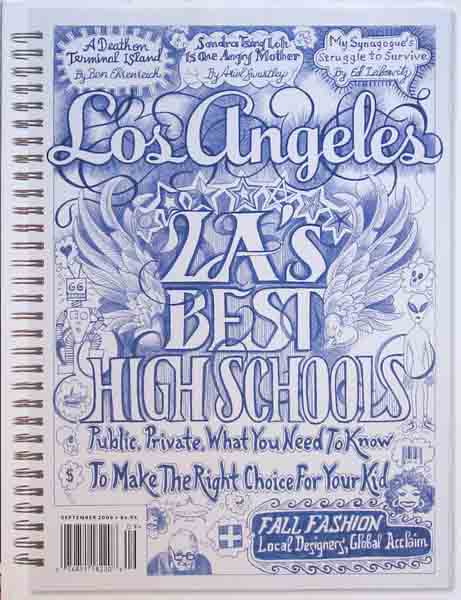 A Death on
Terminal Island
By Ben Ehrenreich
Sandra Tsing Loh
Is One Angry Mother
By Ariel Swartley
My Synagogue's
Struggle to Survive
By Ed Leibowitz
Los Angeles
LA's
BEST
HIGH SCHOOLS
Public, Private, What You Need To Know
To Make The Right Choice For Your Kid
66
$
SEPTEMBER
09
FALL FASHION
Local Designers, Global Acclaim